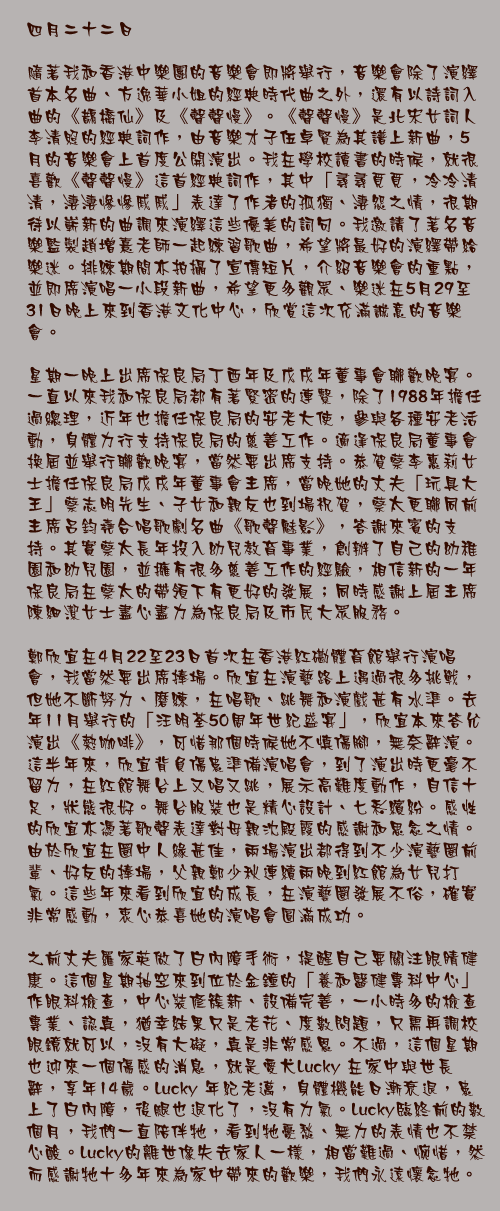 四月二十二日
隨著我和香港中樂團的音樂會即將舉行，音樂會除了演繹
首本名曲、方逸華小姐的經典時代曲之外，還有以詩詞入
曲的《鵲橋仙》及《聲聲慢》。《聲聲慢》是北宋女詞人
李清照的經典詞作，由音樂才子伍卓賢為其譜上新曲，5
月的音樂會上首度公開演出。我在學校讀書的時候，就很
喜歡《聲聲慢》這首經典詞作，其中「尋尋覓覓，冷冷清
清，淒淒慘慘戚戚」表達了作者的孤獨、淒怨之情，很期
待以嶄新的曲調來演繹這些優美的詞句。我邀請了著名音
樂監製趙增熹老師一起練習歌曲，希望將最好的演繹帶給
樂迷。排練期間亦拍攝了宣傳短片，介紹音樂會的重點，
並即席演唱一小段新曲，希望更多觀眾、樂迷在5月29至
31日晚上來到香港文化中心，欣賞這次充滿誠意的音樂
會。
星期一晚上出席保良局丁酉年及戊戌年董事會聯歡晚宴。
一直以來我和保良局都有著緊密的連繫，除了1988年擔任
過總理，近年也擔任保良局的安老大使，參與各種安老活
動，身體力行支持保良局的慈善工作。適逢保良局董事會
換屆並舉行聯歡晚宴，當然要出席支持。恭賀蔡李惠莉女
士擔任保良局戊戌年董事會主席，當晚她的丈夫「玩具大
王」蔡志明先生、子女和親友也到場祝賀，蔡太更聯同前
主席呂鈞堯合唱歌劇名曲《歌聲魅影》，答謝來賓的支
持。其實蔡太長年投入幼兒教育事業，創辦了自己的幼稚
園和幼兒園，並擁有很多慈善工作的經驗，相信新的一年
保良局在蔡太的帶領下有更好的發展；同時感謝上屆主席
陳細潔女士盡心盡力為保良局及市民大眾服務。
鄭欣宜在4月22至23日首次在香港紅磡體育館舉行演唱
會，我當然要出席捧場。欣宜在演藝路上遇過很多挑戰，
但她不斷努力、磨練，在唱歌、跳舞和演戲甚有水準。去
年11月舉行的「汪明荃50周年世紀盛宴」，欣宜本來答允
演出《熱咖啡》，可惜那個時候她不慎傷腳，無奈辭演。
這半年來，欣宜背負傷裝準備演唱會，到了演出時更毫不
留力，在紅館舞台上又唱又跳，展示高難度動作，自信十
足，狀態很好。舞台服裝也是精心設計、七彩繽紛。感性
的欣宜亦憑著歌聲表達對母親沈殿霞的感謝和思念之情。
由於欣宜在圈中人緣甚佳，兩場演出都得到不少演藝圈前
輩、好友的捧場，父親鄭少秋連續兩晚到紅館為女兒打
氣。這些年來看到欣宜的成長，在演藝圈發展不俗，確實
非常感動，衷心恭喜她的演唱會圓滿成功。
之前丈夫羅家英做了白內障手術，提醒自己要關注眼睛健
康。這個星期抽空來到位於金鐘的「養和醫健專科中心」
作眼科檢查，中心裝修簇新、設備完善，一小時多的檢查
專業、認真，猶幸結果只是老花、度數問題，只需再調校
眼鏡就可以，沒有大礙，真是非常感恩。不過，這個星期
也迎來一個傷感的消息，就是愛犬Lucky 在家中與世長
辭，享年14歲。Lucky 年紀老邁，身體機能日漸衰退，患
上了白內障，後腿也退化了，沒有力氣。Lucky臨終前的數
個月，我們一直陪伴牠，看到牠憂愁、無力的表情也不禁
心酸。Lucky的離世像失去家人一樣，相當難過、惋惜，然
而感謝牠十多年來為家中帶來的歡樂，我們永遠懷念牠。